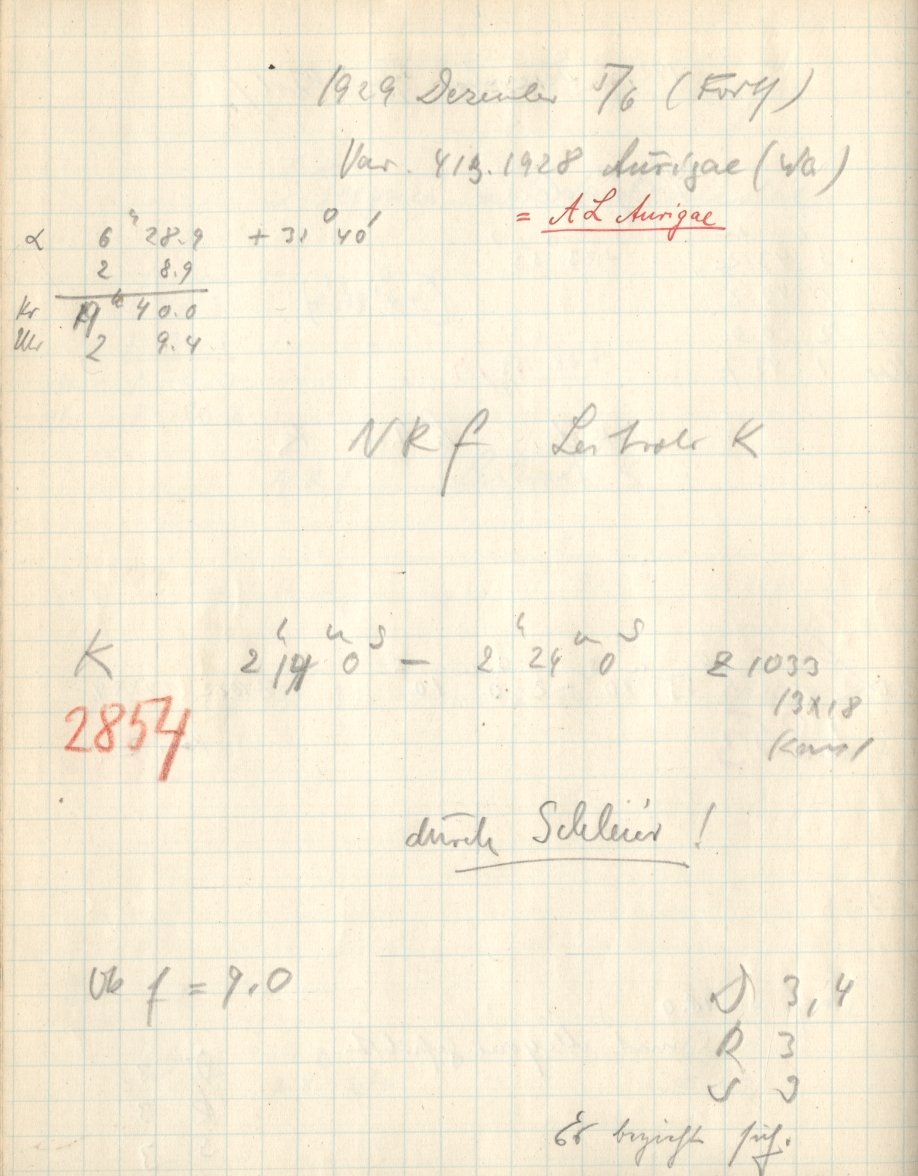 1929 Dezember 5/6 (Fortf)
Var. 413.1928 Aurigae (Wa)
= AL Aurigae
α 6h 28.9 + 31° 40'
2 8.9
Kr 19h 40.0
Uhr 2 9.4
NRf Leitrohr K
K 2h 14m 0s — 2h 24m 0s Z 1033
2854
13x18
durch Schleier!
Ok f = 9.0
D 3,4
R 3
S 3
Es bezieht sich.